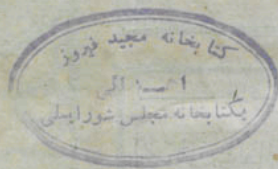 کتابخانه مجید فیروز
بکتابخانه مجلس شورایملی